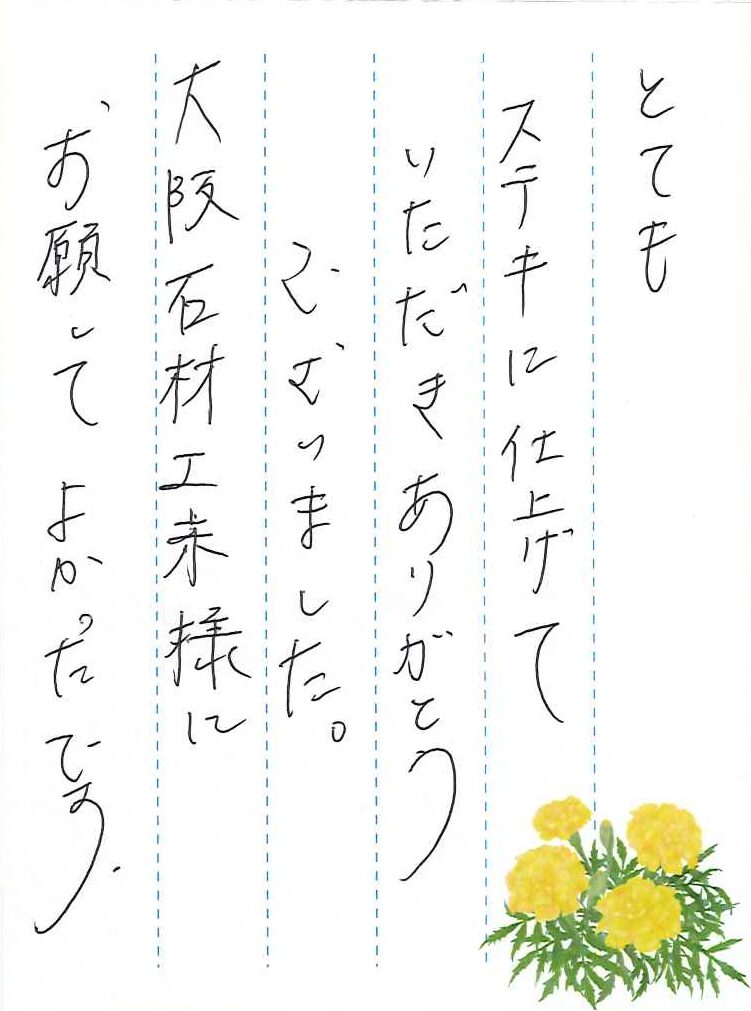 とても
ステキに仕上げて
いただきありがとう
ございました。
大阪石材工業様に
お願して よかったです。